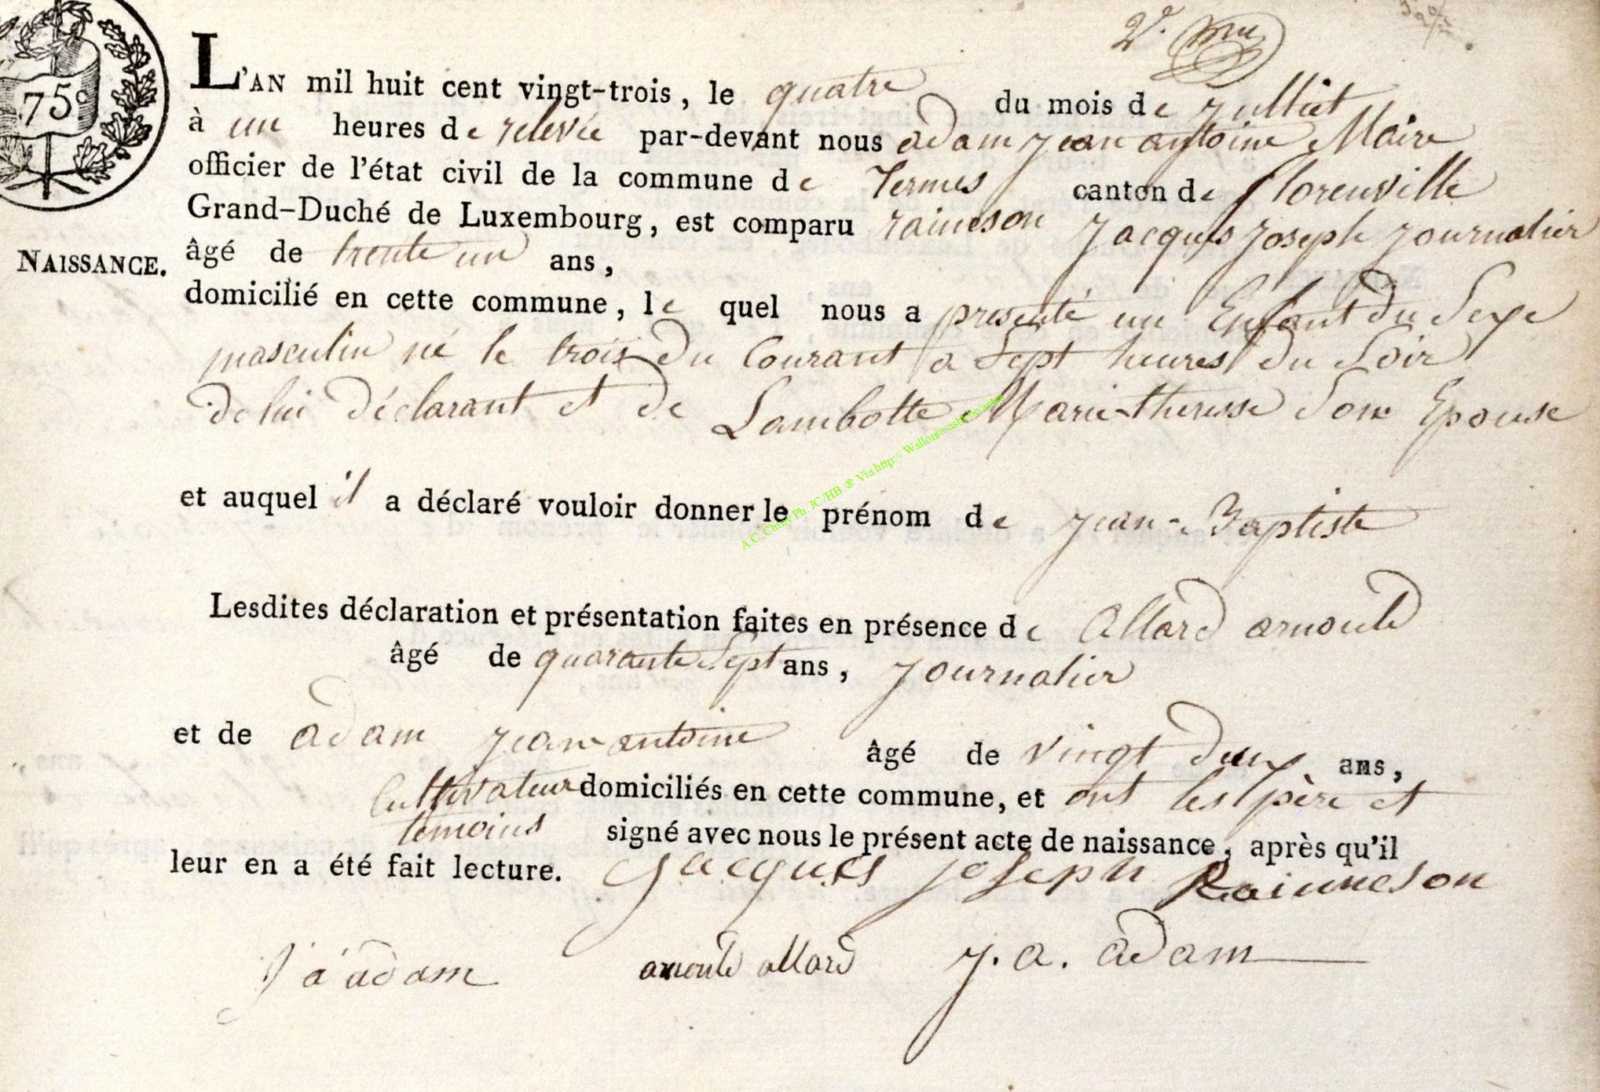 75c
2e.
L'AN mil huit cent vingt-trois, le quatre du mois de juilliet
à une heures de relevée par-devant nous adam jean antoine Maire
officier de l'état civil de la commune de termes canton de florenville
Grand-Duché de Luxembourg, est comparu raineson jacques joseph journalier
NAISSANCE.
âgé de trente un ans,
domicilié en cette commune, le quel nous a presenté un Enfant du Sexe
masculin né le trois du Courant a Sept heures du Soir
de lui déclarant et de Lambotte Marie-theresse Son Epouse
A.C. Chiny Ph. JC/HB @ Via http://Wallonia
et auquel il a déclaré vouloir donner le prénom de jean-Baptiste
Lesdites déclaration et présentation faites en présence de Allard arnould
âgé de quarante Sept ans, journalier
et de adam jean antoine âgé de vingt deux ans,
Cultivateur domiciliés en cette commune, et ont les père et
temoins signé avec nous le présent acte de naissance, après qu'il
leur en a été fait lecture. Jacques joseph Rainneson
j a adam arnould allard j. a. adam